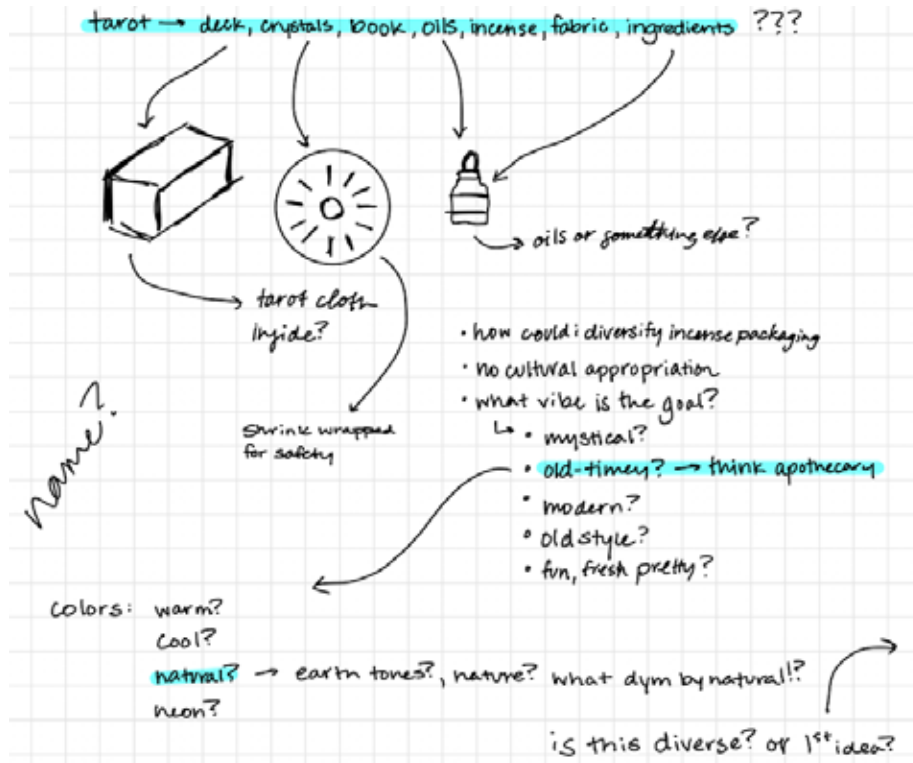 tarot → deck, crystals, book, oils, incense, fabric, ingredients ???
→ oils or something else?
→ tarot cloth
inside?
shrink wrapped
for safety
• how could i diversify incense packaging
• no cultural appropriation
• what vibe is the goal?
↳ • mystical?
• old-timey? → think apothecary
• modern?
• old style?
• fun, fresh pretty?
name?
colors: warm?
cool?
natural? → earth tones?, nature? what dym by natural!?
neon?
is this diverse? or 1st idea?